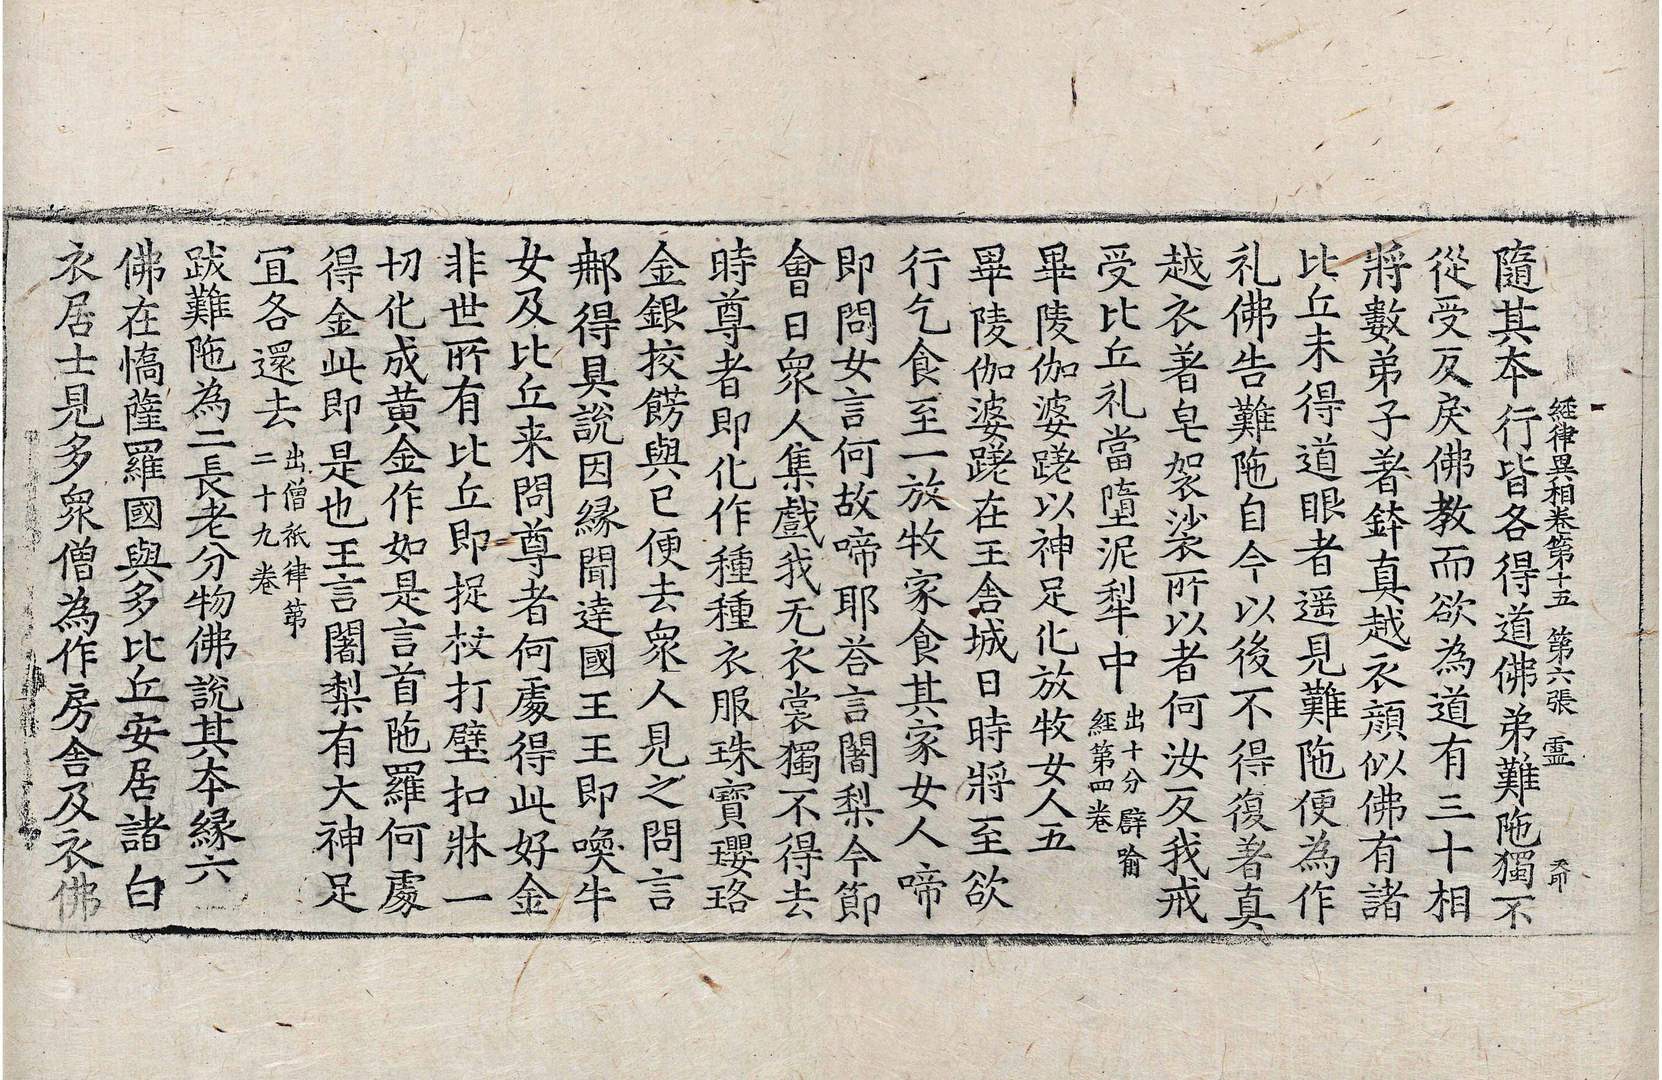 經律異相卷第十五 第六張 霊
隨其本行皆各得道佛弟難陁獨不
從受反戾佛教而欲為道有三十相
將數弟子著鉢真越衣顔似佛有諸
比丘未得道眼者遥見難陁便為作
礼佛告難陁自今以後不得復著真
越衣著皂袈裟所以者何汝反我戒
受比丘礼當墮泥犁中出十分辟喻經第四卷
畢陵伽婆蹉以神足化放牧女人五
畢陵伽婆蹉在王舎城日時將至欲
行乞食至一放牧家食其家女人啼
即問女言何故啼耶荅言闍梨今節
會日衆人集戲我无衣裳獨不得去
時尊者即化作種種衣服珠寶瓔珞
金銀挍餝與已便去衆人見之問言
𨚗得具說因縁聞達國王王即喚牛
女及比丘来問尊者何處得此好金
非世所有比丘即捉杖打壁扣牀一
切化成黄金作如是言首陁羅何處
得金此即是也王言闍梨有大神足
冝各還去出僧祇律第二十九卷
跋難陁為二長老分物佛說其本縁六
佛在憍薩羅國與多比丘安居諸白
衣居士見多衆僧為作房舎及衣佛